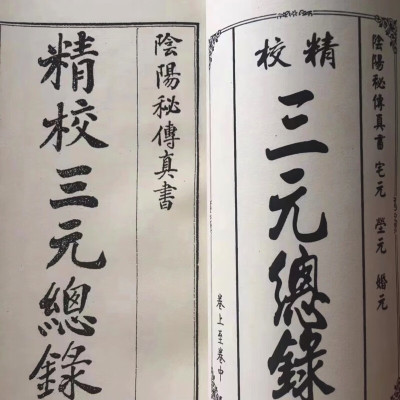 陰陽秘傳真書 宅元 塋元 婚元
精校
三元總錄
卷上至卷中
陰陽秘傳真書
精校三元總錄